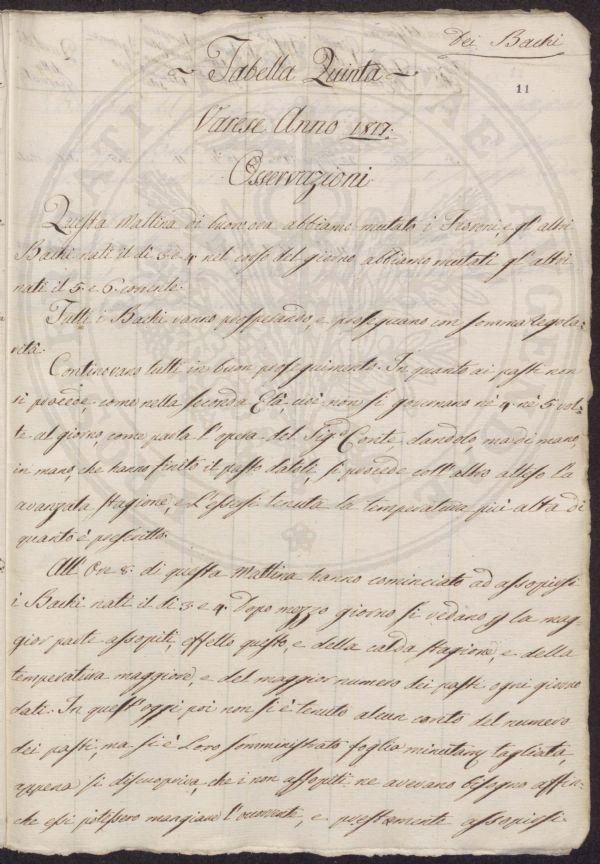 Dei Bachi
11
~ Tabella Quinta ~
Varese Anno 1817.
Osservazioni
Questa Mattina di buon ora abbiamo mutato i Seroni, e gl'altri
Bachi nati il dì 3 e 4 nel corso del giorno abbiamo mutati gl'altri
nati il 5 e 6 corrente.
Tutti i Bachi vanno prosperando, e proseguano con somma regola-
rità.
Continovano tutti in buon proseguimento. In quanto ai pasti non
si procede, come nella seconda Età, cioè non si governano nè 4 nè 5 vol-
te al giorno, come parla l'opera del Sigr. Conte dandolo, ma di mano,
in mano, che hanno finito il pasto datoli, si procede coll'altro atteso la
avanzata stagione, e l'essersi tenuta la temperatura più alta di
quanto è prescritto.
All'Ore 8. di questa Mattina hanno cominciato ad assopirsi
i Bachi nati il dì 3 e 4. Dopo mezzo giorno si vedano la mag-
gior parte assopiti, effetto questo, e della calda stagione, e della
temperatura maggiore, e del maggior numero dei pasti ogni giorno
dati. In quest'oggi poi non si è tenuto alcun conto del numero
dei pasti, ma si è Loro somministrato foglia minutamte tagliata,
appena si discuopriva, che i non assopiti ne avevano bisogno affin-
che essi potessero mangiare l'occorrente, e prestamente assopirsi.